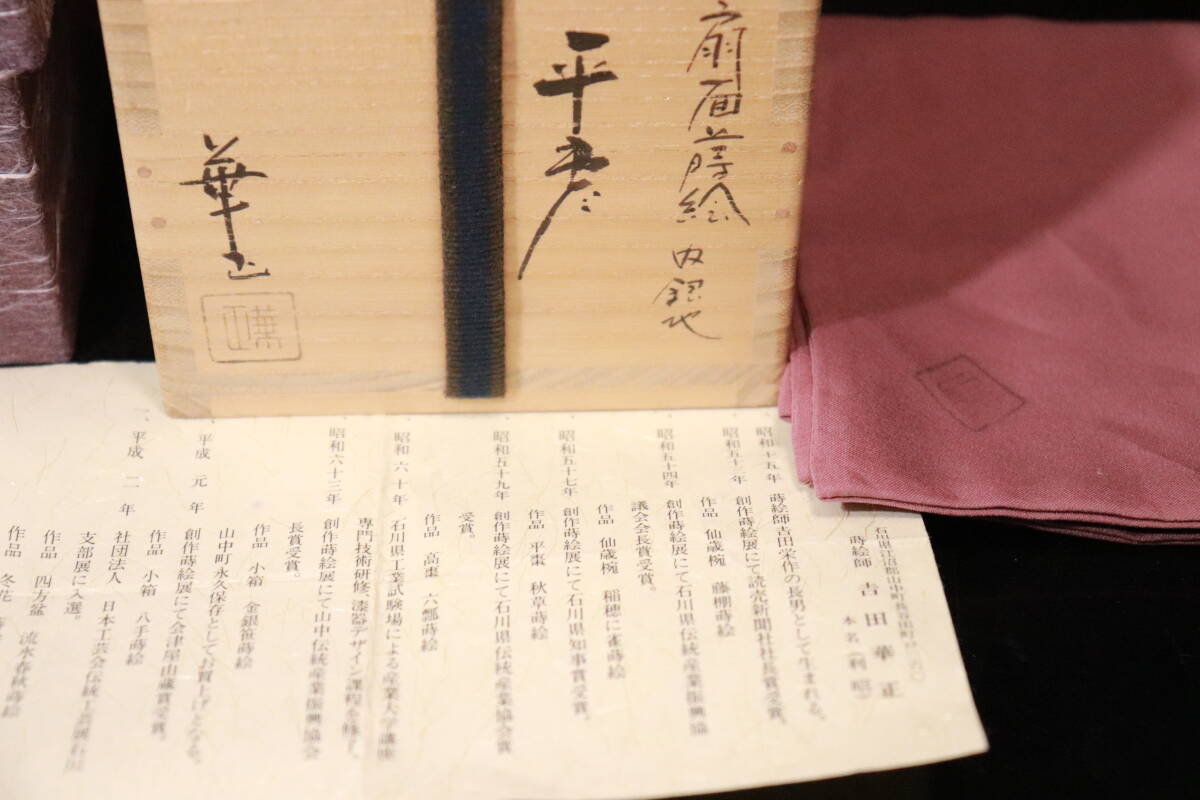 扇面蒔絵 内銀地
平棗
華正
華正
石川県江沼郡山中町長谷田町
蒔絵師 吉田華正
本名(利昭)
昭和十五年 蒔絵師吉田栄作の長男として生まれる。
昭和五十三年 創作蒔絵展にて読売新聞社社長賞受賞。
作品 仙歳椀 藤棚蒔絵
昭和五十四年 創作蒔絵展にて石川県伝統産業振興協
議会会長賞受賞。
作品 仙歳椀 稲穂に雀蒔絵
昭和五十七年 創作蒔絵展にて石川県知事賞受賞。
作品 平棗 秋草蒔絵
昭和五十九年 創作蒔絵展にて石川県伝統産業協会賞
受賞。
作品 高棗 六瓢蒔絵
昭和六十年 石川県工業試験場による産業大学講座
専門技術研修、漆器デザイン課程を修了。
昭和六十三年 創作蒔絵展にて山中伝統産業振興協会
長賞受賞。
作品 小箱 金銀笹蒔絵
山中町永久保存としてお買上げとなる。
平成元年 創作蒔絵展にて会津屋由蔵賞受賞。
作品 小箱 八手蒔絵
一、平成二年 社団法人 日本工芸会伝統工芸展石川
支部展に入選。
作品 四方盆 流水春秋蒔絵
作品 冬花